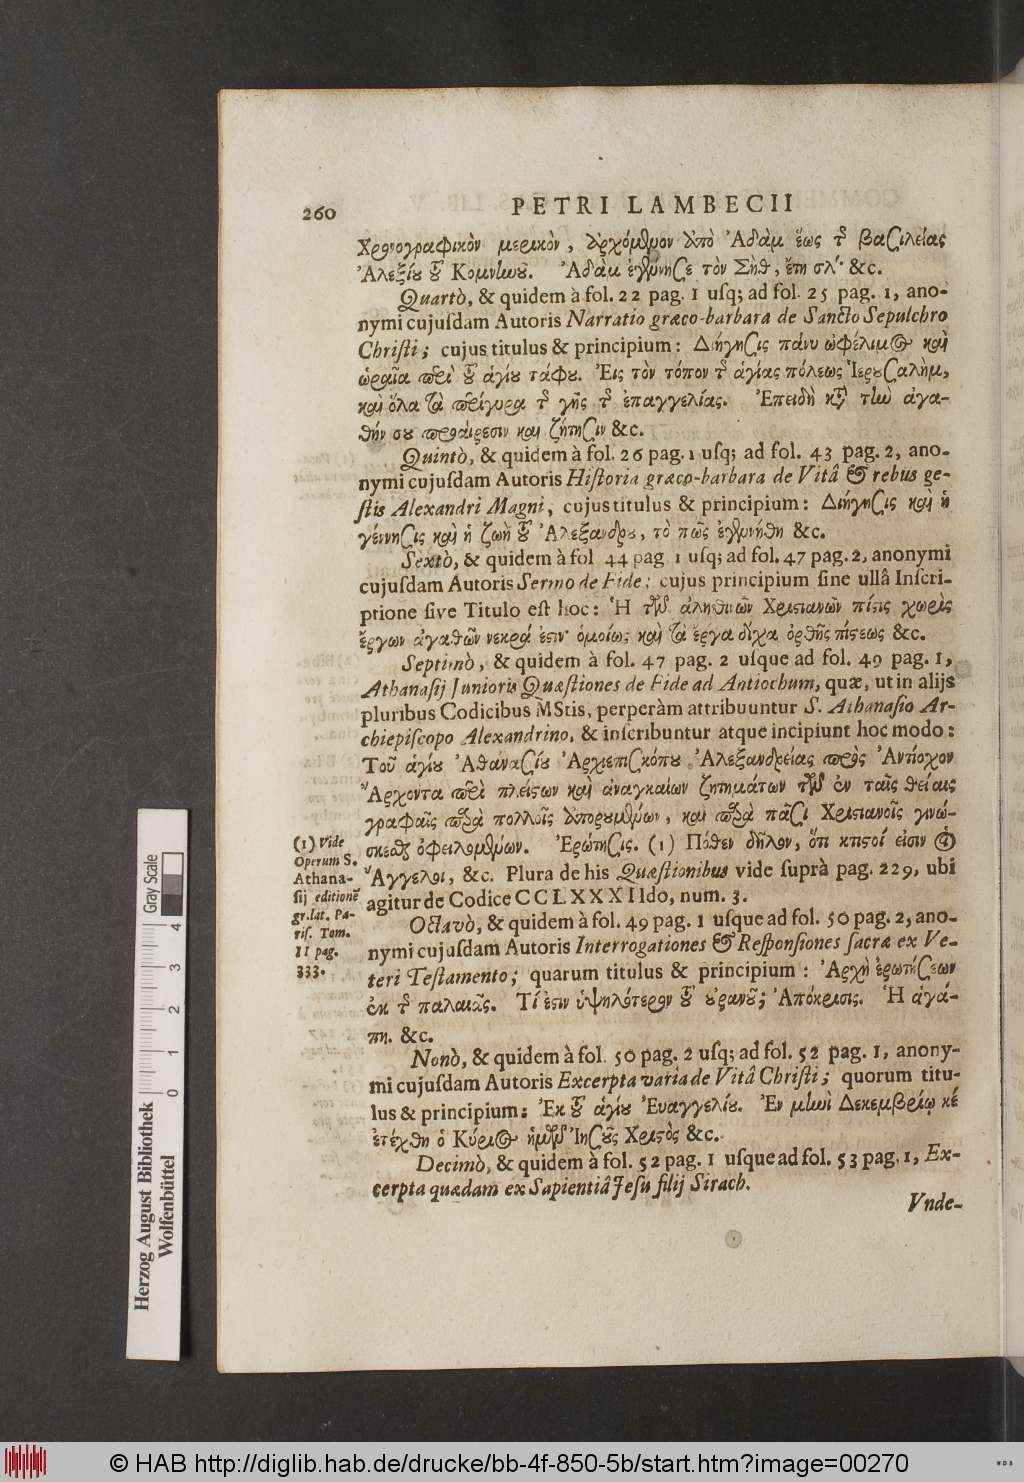 260 PETRI LAMBECII
Χρονογραφικὸν μερικὸν, ἀρχόμενον ἀπὸ Ἀδὰμ ἕως τῆς βασιλείας
Ἀλεξίου τοῦ Κομνηνοῦ. Ἀδὰμ ἐγέννησε τὸν Σὴθ, ἔτη σλʹ &c.
Quartò, & quidem à fol. 22 pag. 1 uſq; ad fol. 25 pag. 1, ano-
nymi cujuſdam Autoris Narratio græco-barbara de Sancto Sepulchro
Chriſti; cujus titulus & principium: Διήγησις πάνυ ὠφέλιμος καὶ
ὡραῖα περὶ τοῦ ἁγίου τάφου. Ἐις τὸν τόπον τῆς ἁγίας πόλεως Ἱερουσαλὴμ,
καὶ ὅλα τὰ περίγυρα τῆς γῆς τῆς ἐπαγγελίας. Ἐπειδὴ κατὰ τὴν ἀγα-
θήν σου προαίρεσιν καὶ ζήτησιν &c.
Quintò, & quidem à fol. 26 pag. 1 uſq; ad fol. 43 pag. 2, ano-
nymi cujuſdam Autoris Hiſtoria græco-barbara de Vitâ & rebus ge-
ſtis Alexandri Magni, cujus titulus & principium: Διήγησις καὶ ἡ
γέννησις καὶ ἡ ζωὴ τοῦ Ἀλεξανδρου, τὸ πῶς ἐγεννήθη &c.
Sextò, & quidem à fol 44 pag. 1 uſq; ad fol. 47 pag. 2, anonymi
cujuſdam Autoris Sermo de Fide; cujus principium ſine ullâ Inſcri-
ptione ſive Titulo eſt hoc: Ἡ τῶν ἀληθινῶν Χριστιανῶν πίστις χωρὶς
ἔργων ἀγαθῶν νεκρά ἐστιν· ὁμοίως καὶ τὰ ἔργα δίχα ὀρθῆς πίστεως &c.
Septimò, & quidem à fol. 47 pag. 2 uſque ad fol. 49 pag. 1,
Athanaſij Junioris Quæſtiones de Fide ad Antiochum, quæ, ut in alijs
pluribus Codicibus MStis, perperàm attribuuntur S. Athanaſio Ar-
chiepiſcopo Alexandrino, & inſcribuntur atque incipiunt hoc modo:
Τοῦ ἁγίου Ἀθανασίου Ἀρχιεπισκόπου Ἀλεξανδρείας πρὸς Ἀντίοχον
Ἄρχοντα περὶ πλείστων καὶ ἀναγκαίων ζητημάτων τῶν ἐν ταῖς θείαις
γραφαῖς παρὰ πολλοῖς ἀπορουμένων, καὶ παρὰ πᾶσι Χριστιανοῖς γινώ-
σκεσθαι ὀφειλομένων. Ἐρώτησις. (1) Πόθεν δῆλον, ὅτι κτιστοί εἰσιν οἱ
Ἄγγελοι, &c. Plura de his Quæſtionibus vide ſuprà pag. 229, ubi
agitur de Codice CCLXXXIIdo, num. 3.
(1) Vide
Operum S.
Athana-
ſij editionē
gr. lat. Pa-
riſ. Tom.
II pag.
333.
Octavò, & quidem à fol. 49 pag. 1 uſque ad fol. 50 pag. 2, ano-
nymi cujuſdam Autoris Interrogationes & Reſponſiones ſacræ ex Ve-
teri Teſtamento; quarum titulus & principium: Ἀρχὴ ἐρωτήσεων
ἐκ τῆς παλαιᾶς. Τί ἐστιν ὑψηλότερον τοῦ οὐρανοῦ; Ἀπόκρισις. Ἡ ἀγά-
πη. &c.
Nonò, & quidem à fol. 50 pag. 2 uſq; ad fol. 52 pag. 1, anony-
mi cujuſdam Autoris Excerpta varia de Vitâ Chriſti; quorum titu-
lus & principium: Ἐκ τοῦ ἁγίου Ἐυαγγελίου. Ἐν μηνὶ Δεκεμβρίῳ κέ
ἐτέχθη ὁ Κύριος ἡμῶν Ἰησοῦς Χριστὸς &c.
Decimò, & quidem à fol. 52 pag. 1 uſque ad fol. 53 pag. 1, Ex-
cerpta quædam ex Sapientiâ Jeſu filij Sirach.
Vnde-
Gray Scale
0 1 2 3 4
Herzog August Bibliothek
Wolfenbüttel
© HAB http://diglib.hab.de/drucke/bb-4f-850-5b/start.htm?image=00270